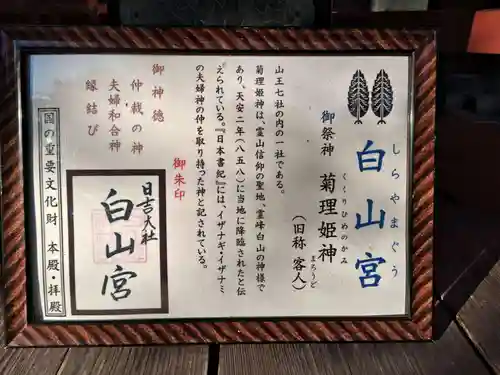 しらやまぐう
白山宮
御祭神 菊理姫神
くくりひめのかみ
(旧称 客人)
まろうど
山王七社の内の一社である。
菊理姫神は、霊山信仰の聖地、霊峰白山の神様で
あり、天安二年(八五八)に当地に降臨されたと伝
えられている。『日本書紀』には、イザナギ・イザナミ
の夫婦神の仲を取り持った神と記されている。
御神徳
仲裁の神
夫婦和合神
縁結び
御朱印
日吉大社
白山宮
国の重要文化財 本殿・拝殿